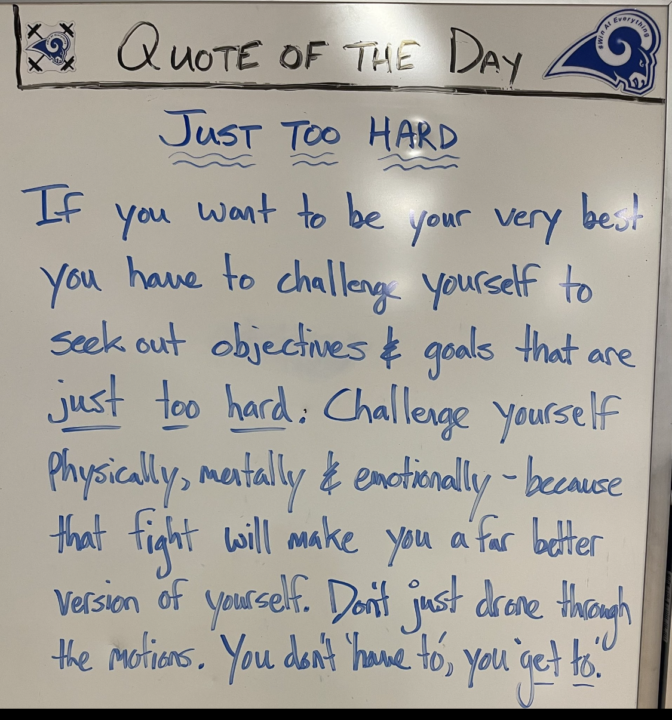 QUOTE OF THE DAY
#Win At Everything
JUST TOO HARD
If you want to be your very best
you have to challenge yourself to
seek out objectives & goals that are
just too hard. Challenge yourself
Physically, mentally & emotionally - because
that fight will make you a far better
version of yourself. Don't just drone through
the motions. You don't 'have to', you 'get to'.